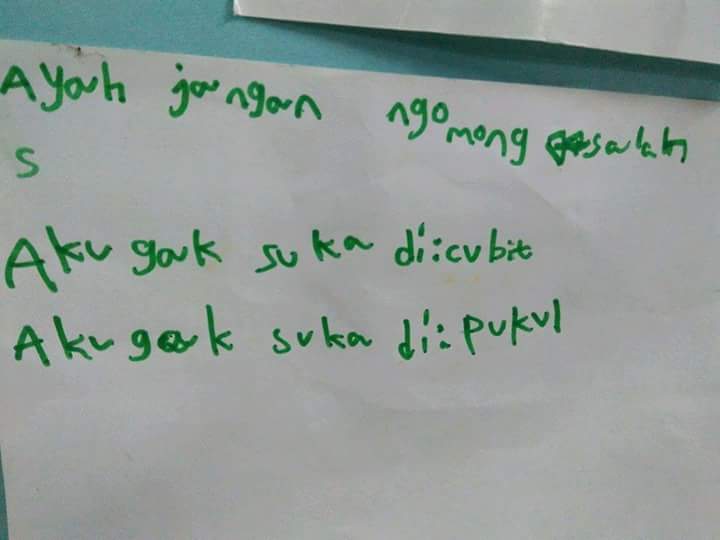 Ayah jangan ngomong salah
s
Aku gak suka di:cubit
Aku gak suka di:pukul